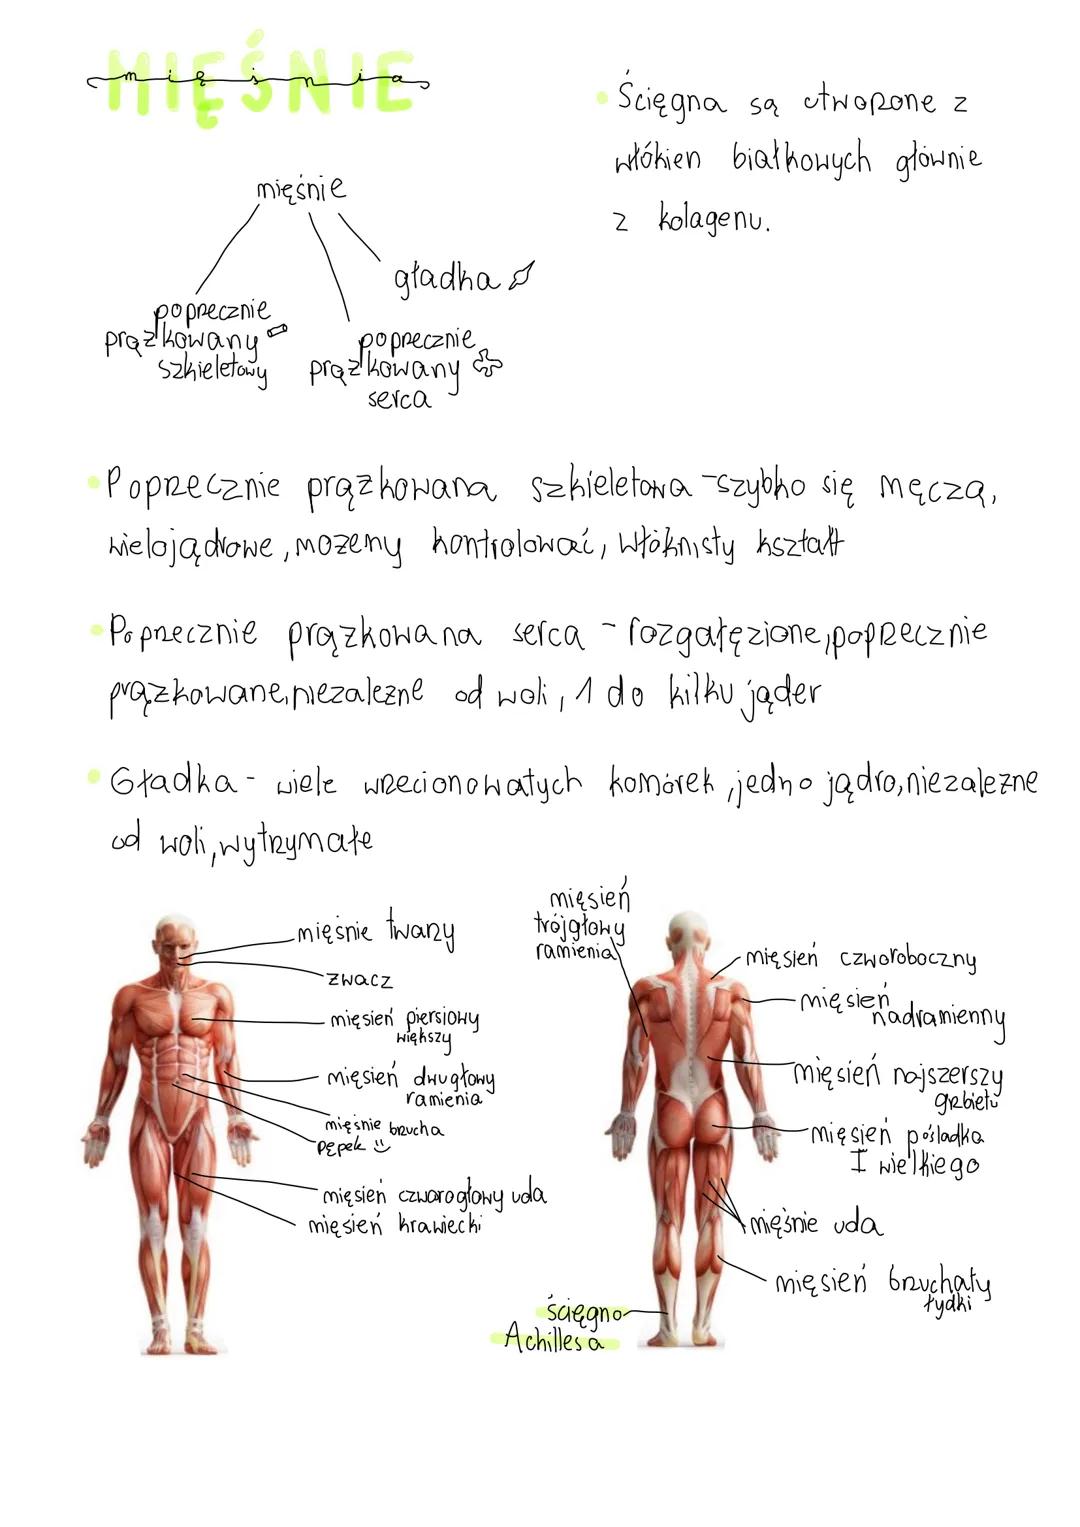 MIĘŚNIE
mięśnia
mięśnie
poprzecznie
prążkowany
szkieletowy
poprzecznie
prążkowany
serca
gładka
Ścięgna są utworzone z
włókien białkowych głównie
z kolagenu.
Poprzecznie prążkowana szkieletowa - szybko się męczą,
wielojądrowe, możemy kontrolować, włóknisty kształt
Poprzecznie prążkowana serca - rozgałęzione, poprzecznie
prążkowane, niezależne od woli, 1 do kilku jąder
Gładka - wiele wrzecionowatych komórek, jedno jądro, niezależne
od woli, wytrzymałe
mięśnie twarzy
żwacz
mięsień piersiowy
większy
mięsień dwugłowy
ramienia
mięśnie brzucha
pępek
mięsień czworogłowy uda
mięsień krawiecki
mięsień
trójgłowy
ramienia
mięsień czworoboczny
mięsień
nadramienny
mięsień najszerszy
grzbietu
mięsień pośladka
I wielkiego
mięśnie uda
mięsień brzuchaty
łydki
ścięgno
Achillesa